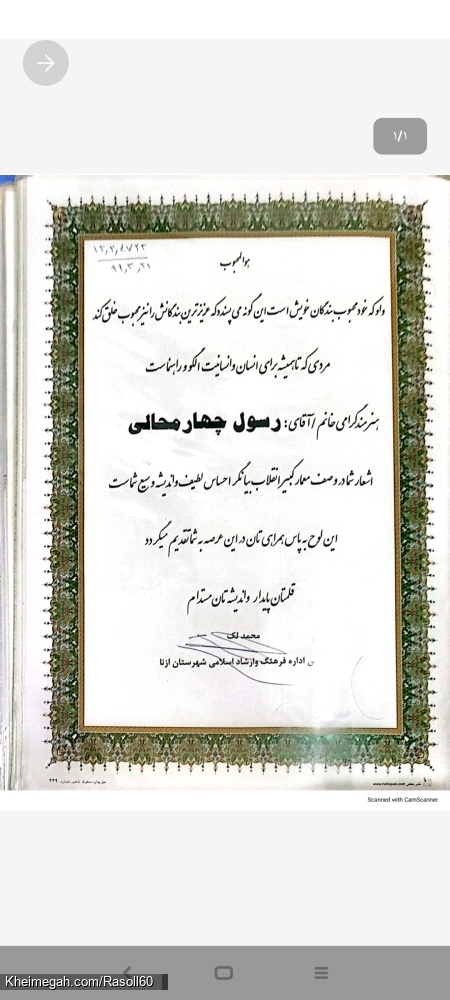 ۱/۱
هوالمحبوب
۹۹,۳,۲۱
واو که خود محبوب بندگان خویش است این گونه می پسندد که عزیزترین بندگانش را نیز محبوب خلق کند
مردی که تا همیشه برای انسان و انسانیت الگو و راهنماست
هنرمند گرامی خانم / آقای: رسول چهار محالی
اشعار شما در وصف معمار کبیر انقلاب بیانگر احساس لطیف و اندیشه وسیع شماست
این لوح به پاس همراهی تان در این عرصه به شما تقدیم میگردد
قلمتان پایدار و اندیشه تان مستدام
محمد لک
اداره فرهنگ وارشاد اسلامی شهرستان ازنا
Scanned with CamScanner
Kheimegah.com/Rasoll60